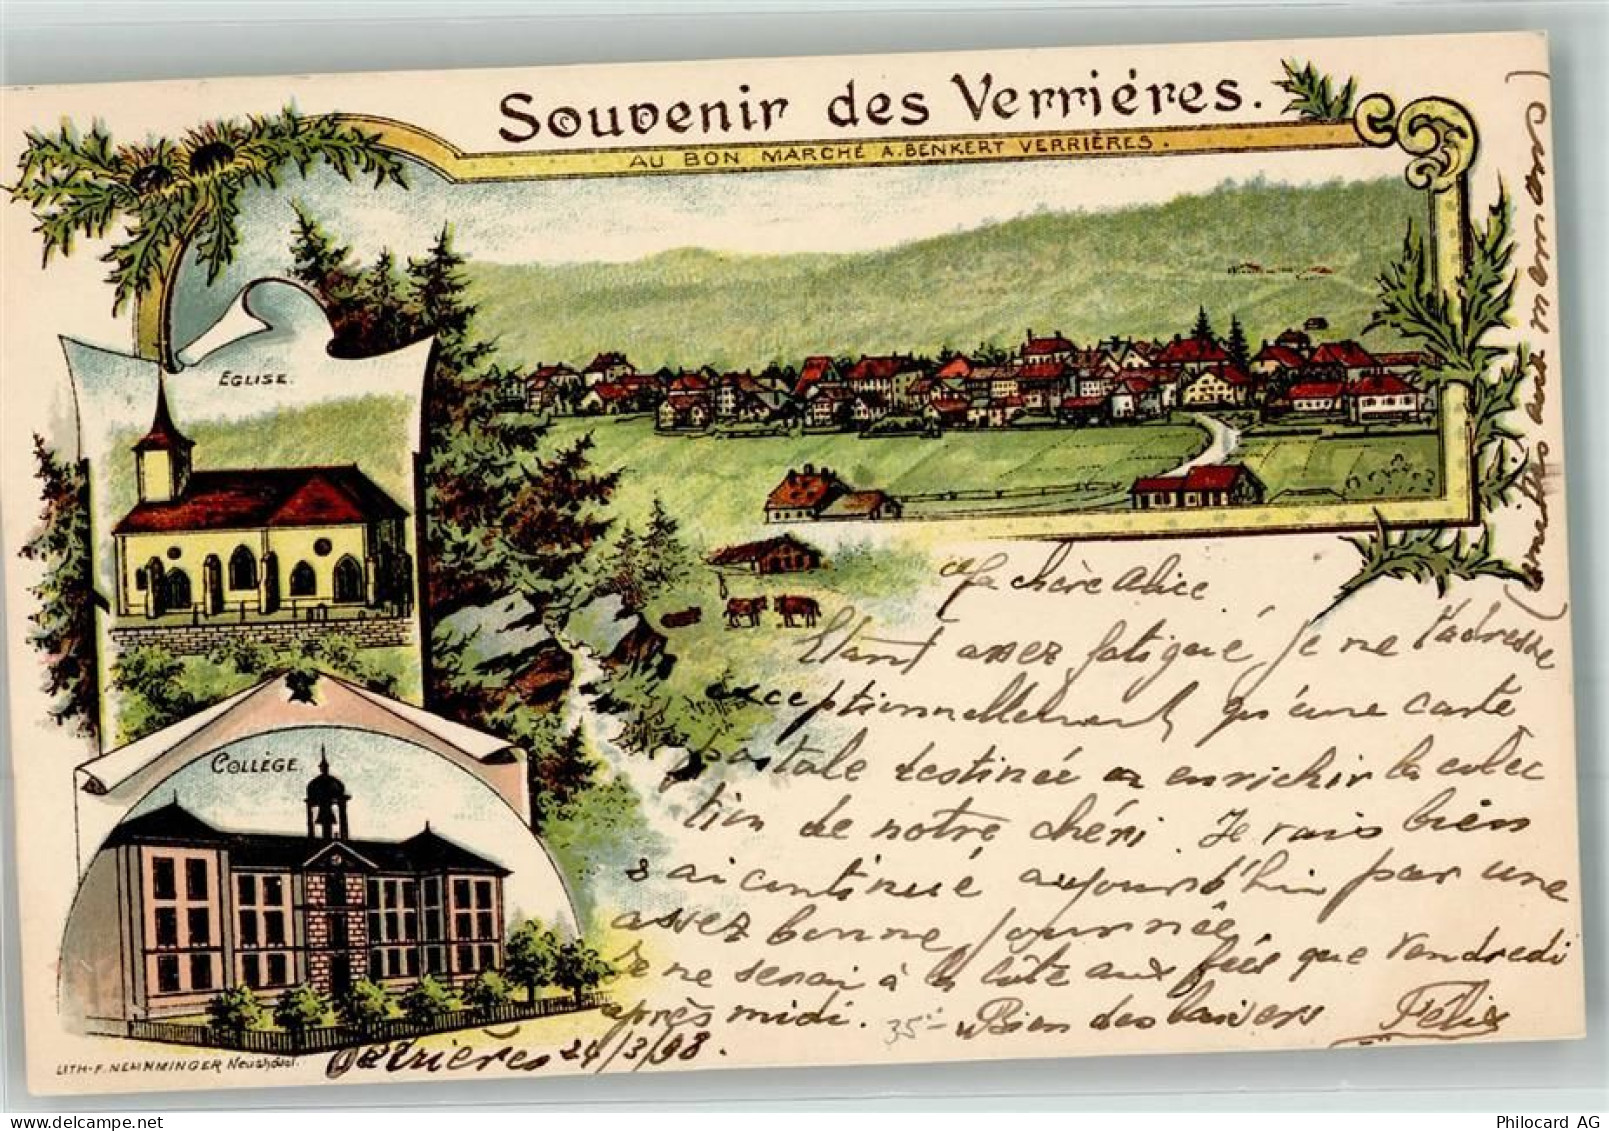 Souvenir des Verriéres.
AU BON MARCHÉ A. BENKERT VERRIÈRES.
EGLISE.
COLLÈGE.
Ma chère Alice.
Etant assez fatigué je ne t'adresse
exceptionnellement qu'une carte
postale destinée a enrichir la collec
tion de notre chéri. Je vais bien
s ai continué aujourd'hui par une
assez bonne journée
Je ne serai à la Côte aux fées que vendredi
après midi. 35.- Bien des baisers Félix
Verrières 24/3/98.
(amitiés aux maman)
LITH-F. NEMNMINGER Neuchâtel.
Philocard AG